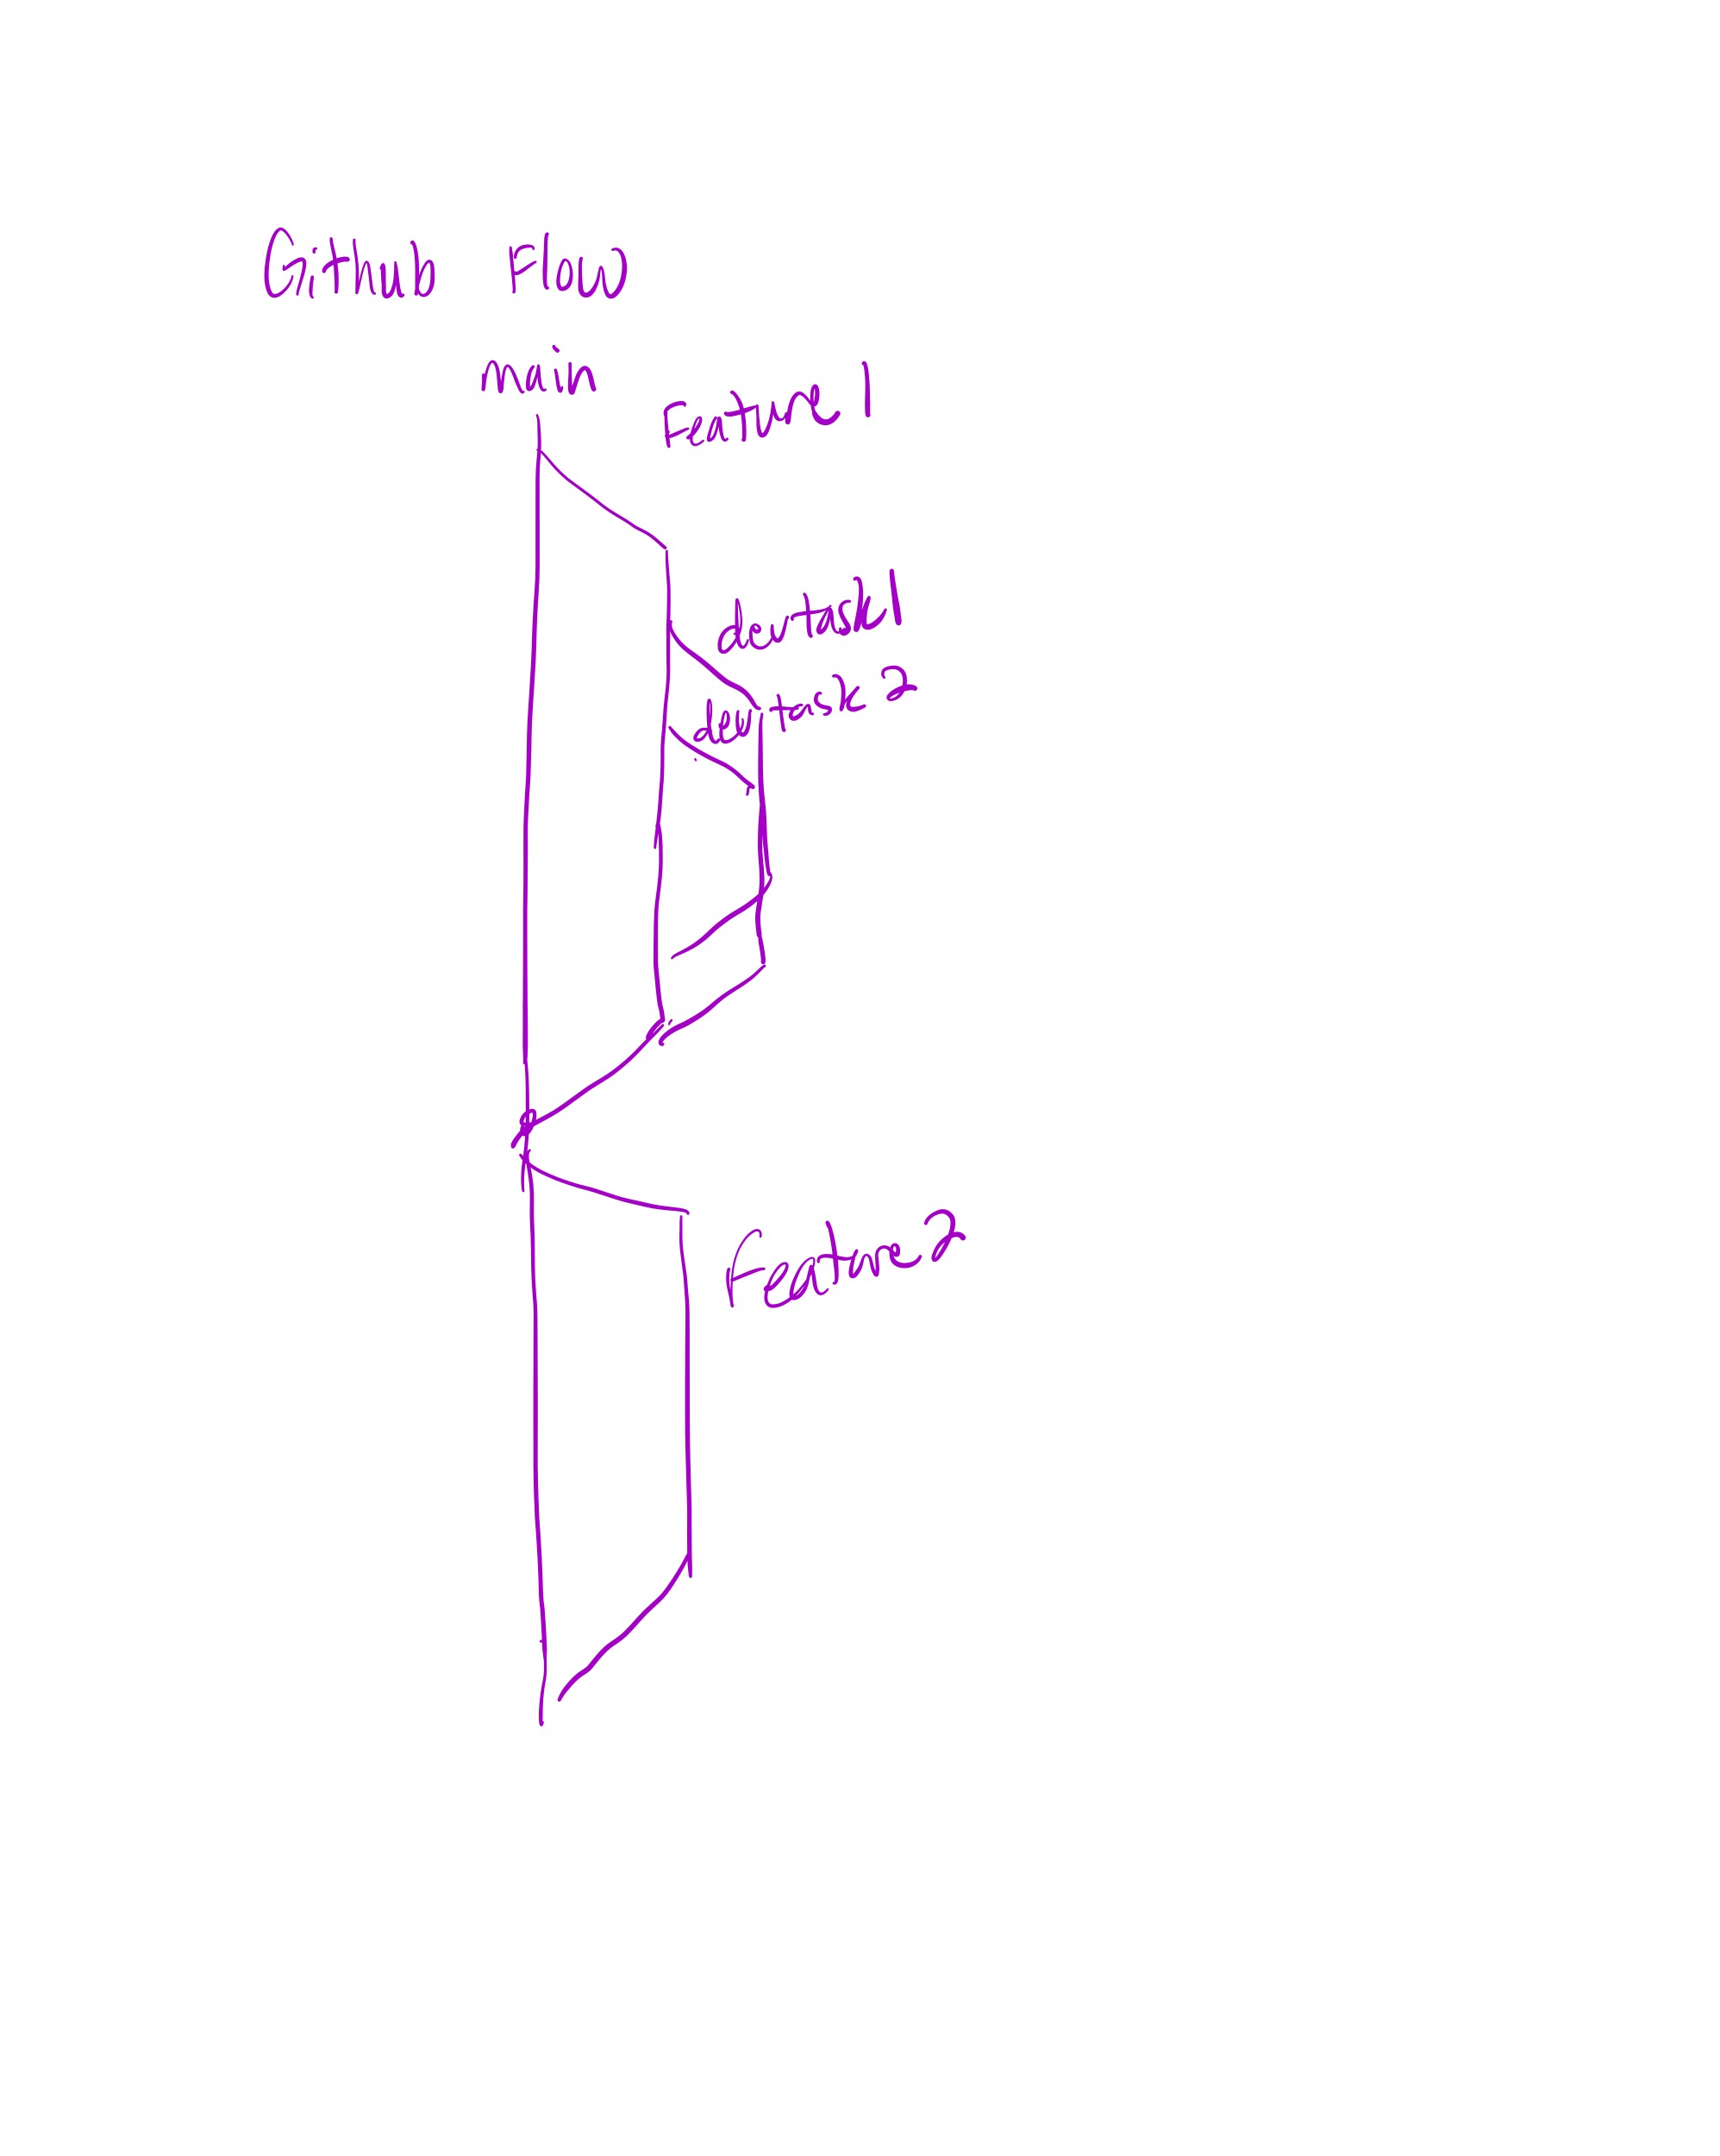 Github Flow
main
Feature 1
devtask1
dev task 2
Feature2